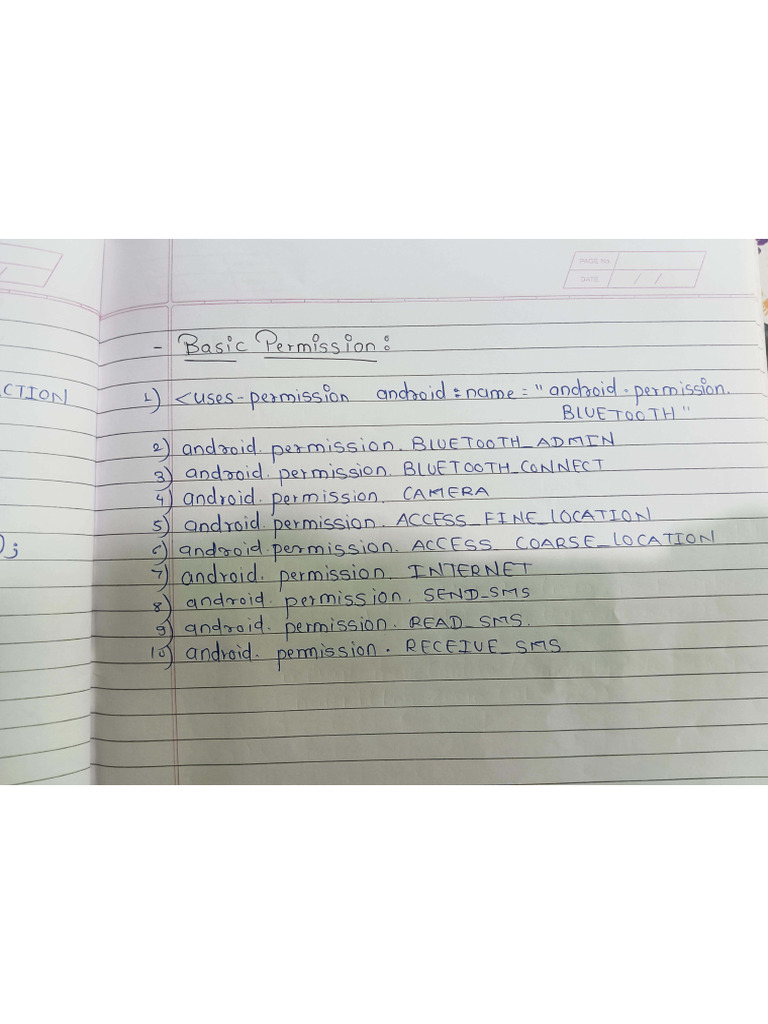 - Basic Permission:
CTION
1) <uses-permission android:name="android.permission.
BLUETOOTH"
2) android.permission.BLUETOOTH_ADMIN
3) android.permission.BLUETOOTH_CONNECT
4) android.permission.CAMERA
5) android.permission.ACCESS_FINE_LOCATION
6) android.permission.ACCESS_COARSE_LOCATION
);
7) android.permission.INTERNET
8) android.permission.SEND_SMS
9) android.permission.READ_SMS.
10) android.permission.RECEIVE_SMS